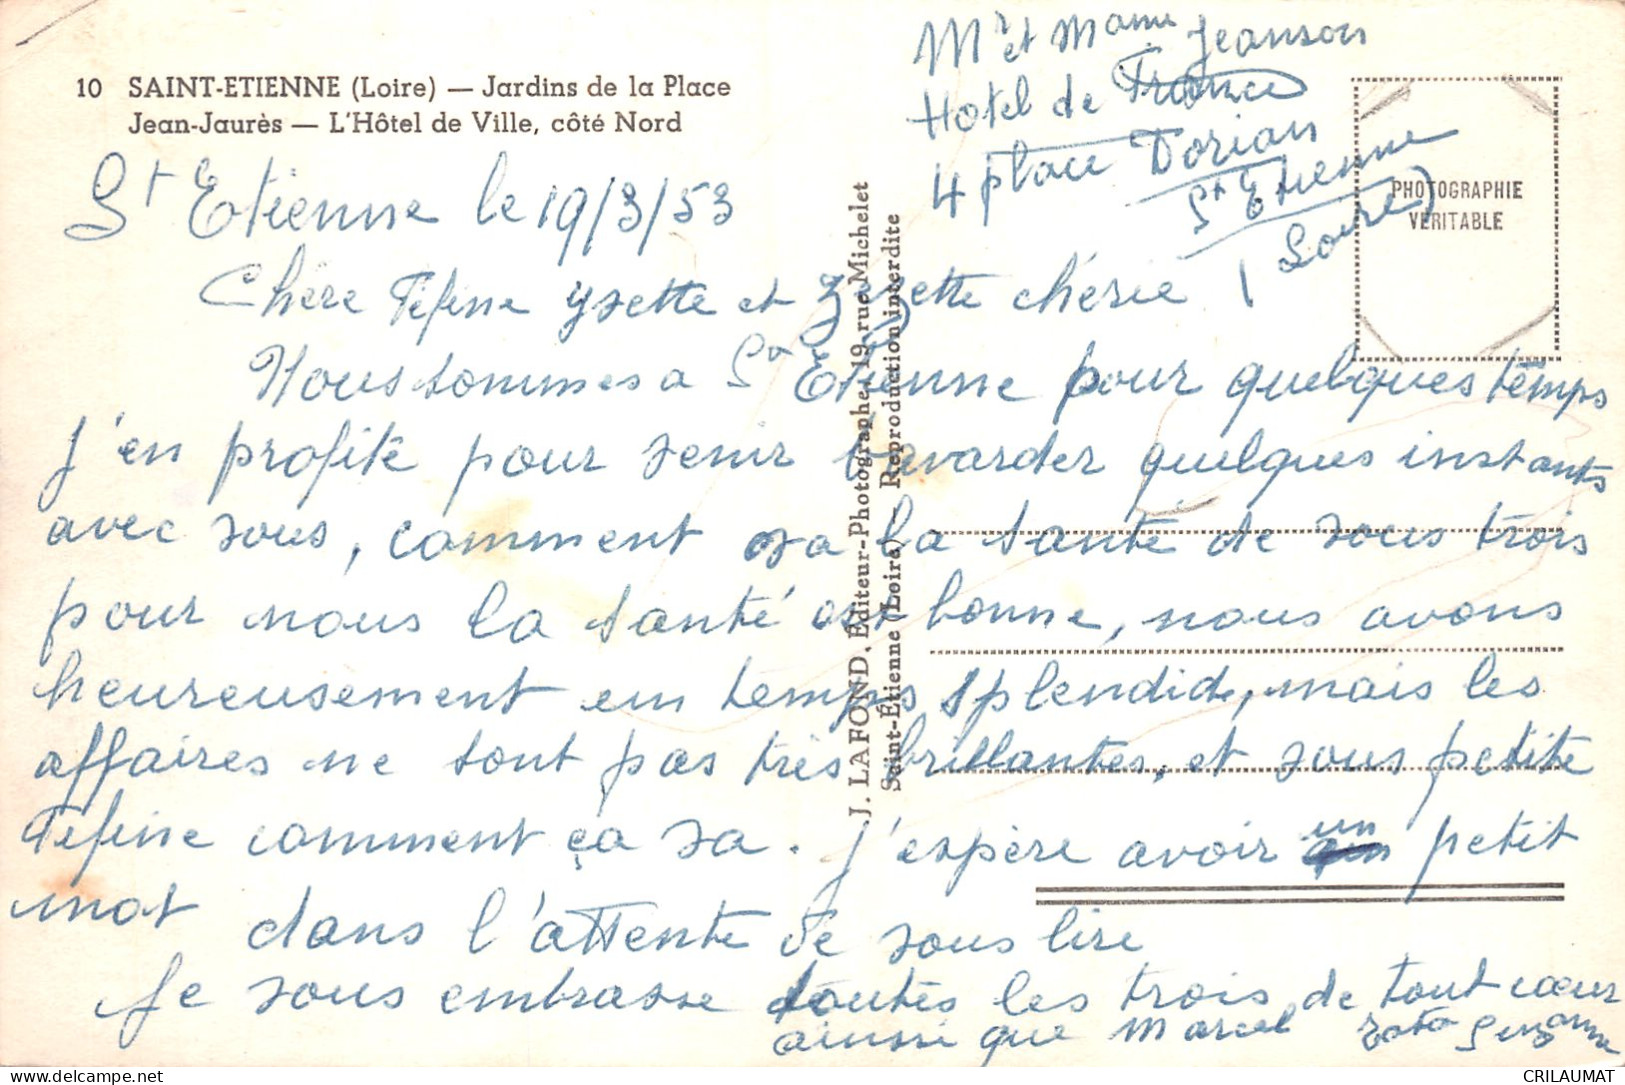 10 SAINT-ETIENNE (Loire) — Jardins de la Place
Jean-Jaurès — L'Hôtel de Ville, côté Nord
Mr et Mame Jeanson
Hotel de France
4 place Dorian
St Etienne
(Loire)
PHOTOGRAPHIE
VERITABLE
J. LAFOND, Editeur-Photographe, 19, rue Michelet
Saint-Étienne (Loire) — Reproduction interdite
St Etienne le 19/3/53
Chère Féfine Ysette et Zezette chérie
Nous sommes a St Etienne pour quelques temps
j'en profite pour venir bavarder quelques instants
avec vous, comment va la santé de vous trois
pour nous la santé est bonne, nous avons
heureusement un temps splendid, mais les
affaires ne sont pas très brillantes, et vous petite
Féfine comment ça va. J'espère avoir un petit
mot dans l'attente de vous lire
Je vous embrasse toutes les trois de tout cœur
ainssi que Marcel Suzanne
CRILAUMAT